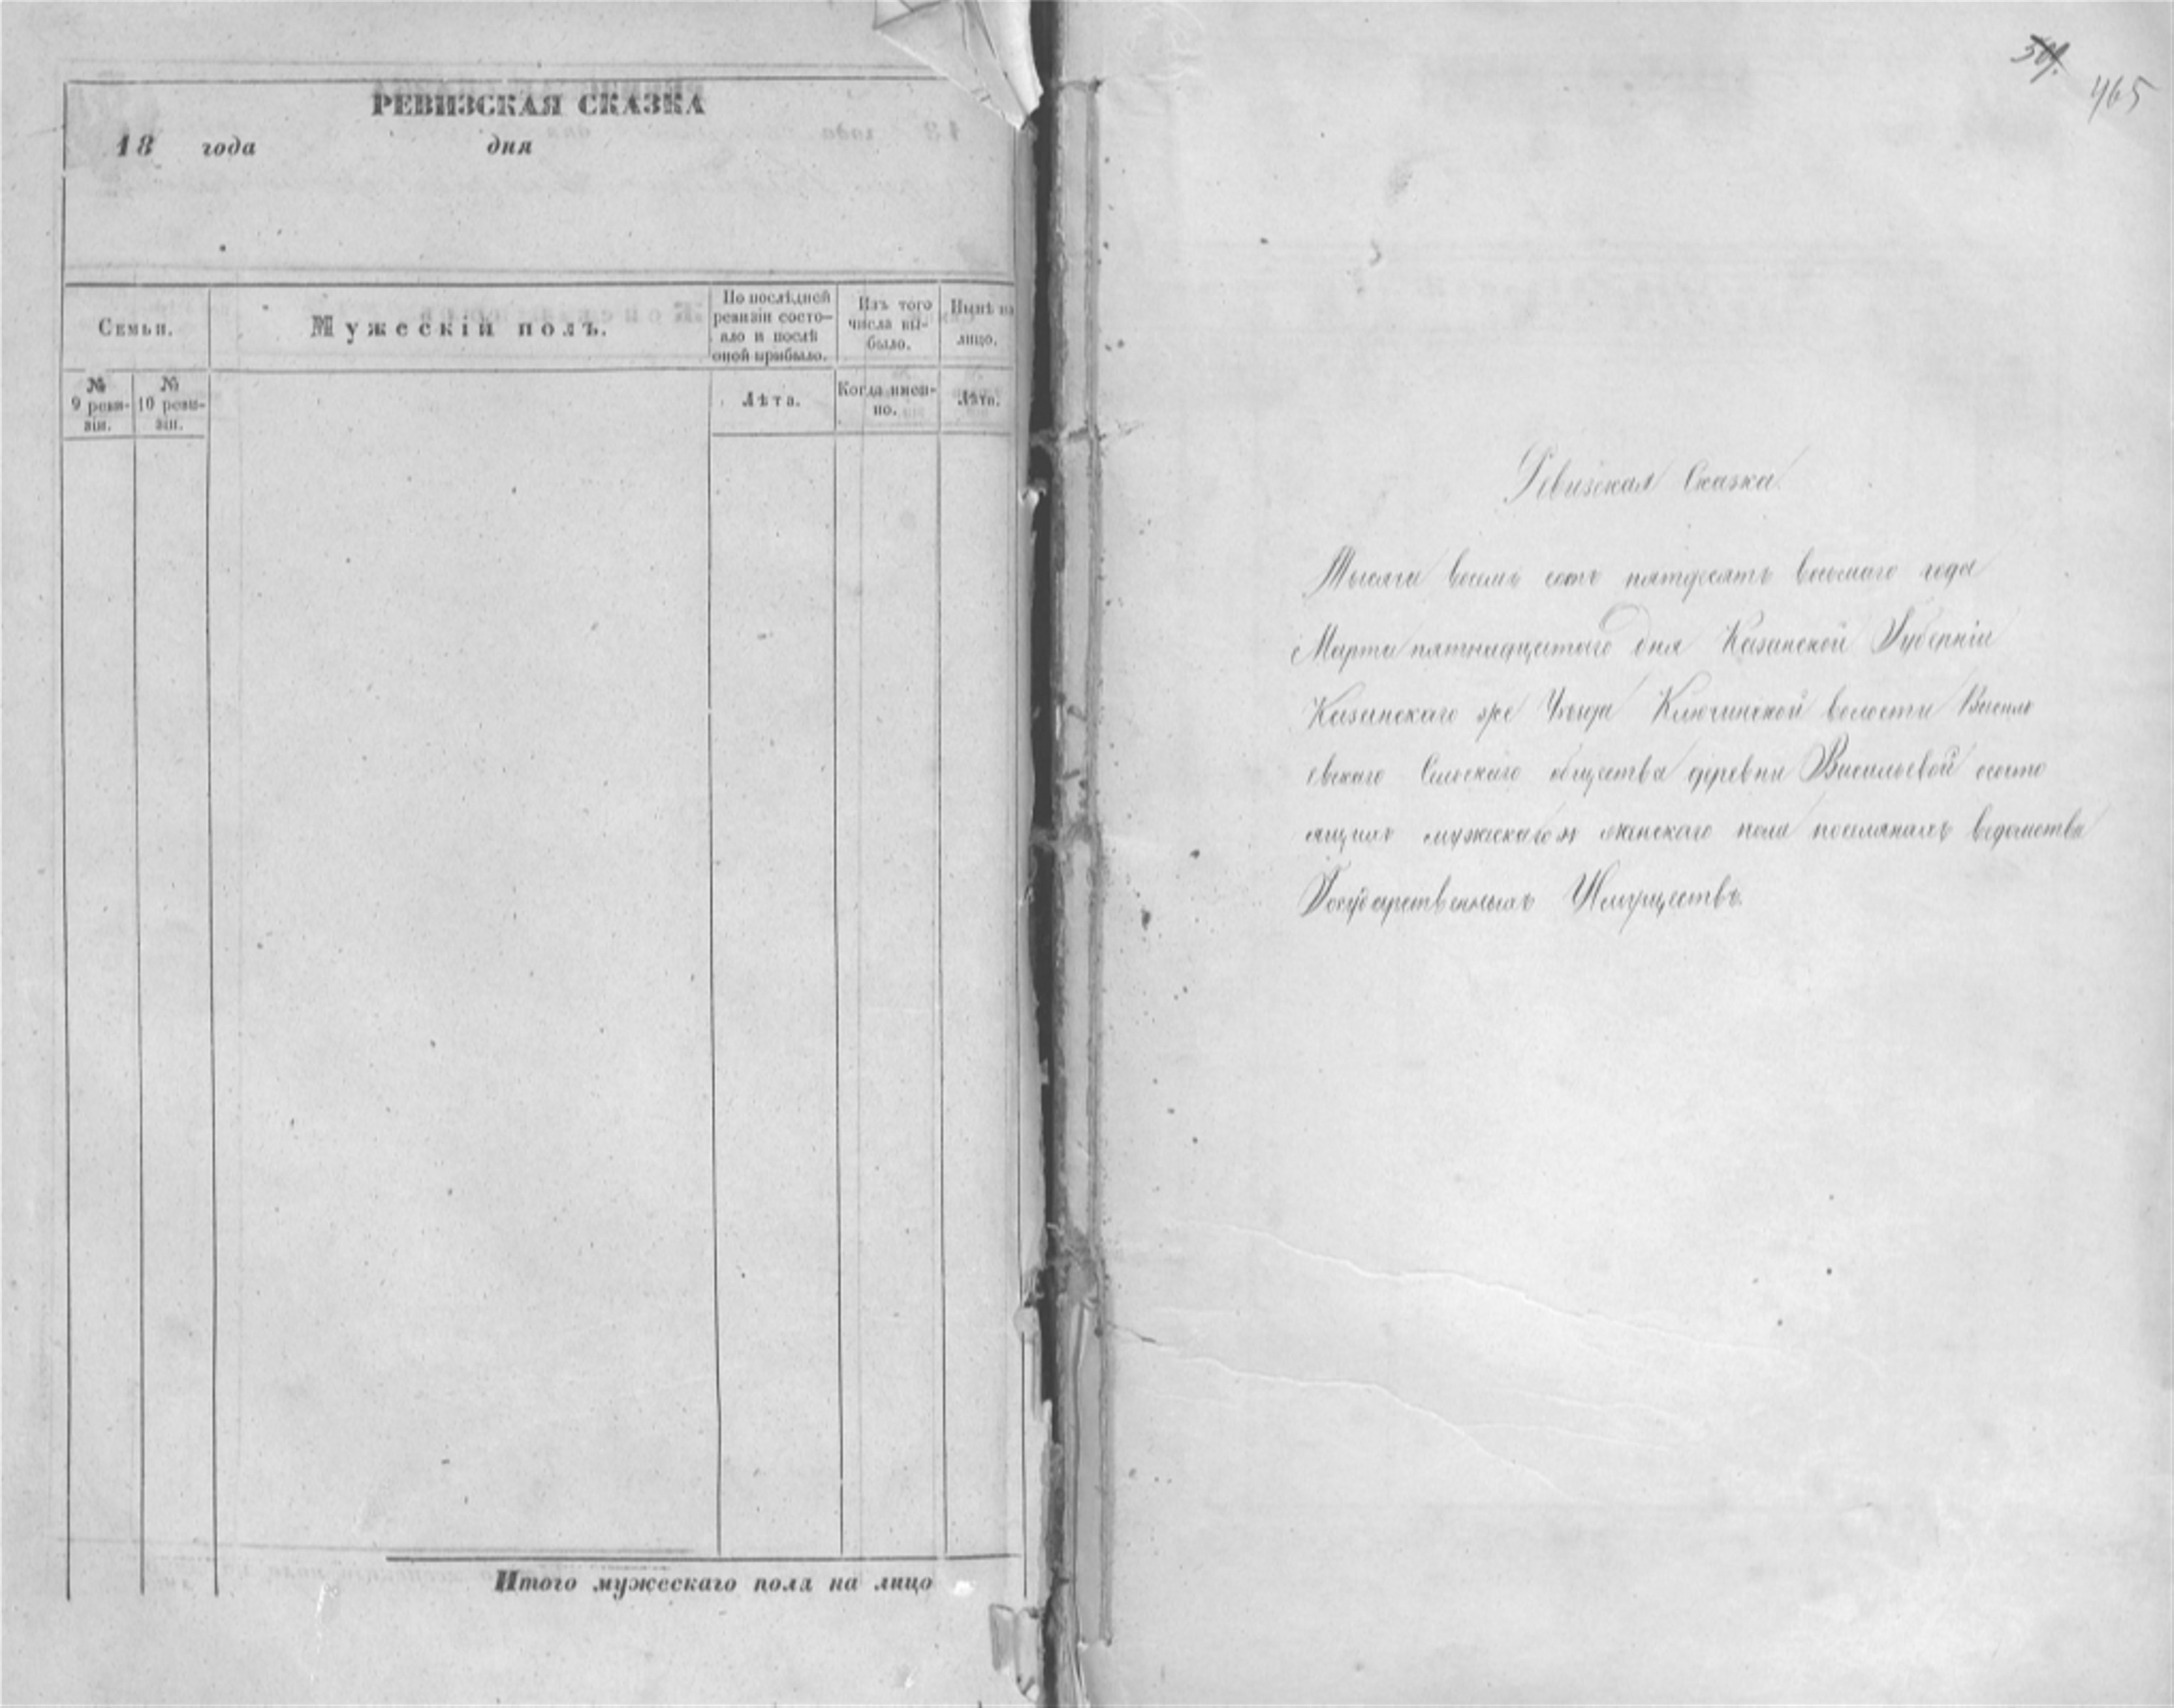 РЕВИЗСКАЯ СКАЗКА
18 года дня
Семьи.
Мужескій полъ.
По послѣдней
ревизіи состо-
яло и послѣ
оной прибыло.
Изъ того
числа вы-
было.
Нынѣ на
лицо.
№
9 реви-
зіи.
№
10 реви-
зіи.
Лѣта.
Когда имен-
но.
Лѣта.
Итого мужескаго пола на лицо
465
Ревизская Сказка
Тысяча восемь сотъ пятдесятъ восьмаго года
Марта пятнадцатаго дня Казанской Губерніи
Казанскаго же Уѣзда Ключинской волости Василь
евскаго Сельскаго общества деревни Васильевой состо
ящихъ мужескаго и женскаго пола поселянахъ ведомства
Государственныхъ Имуществъ.